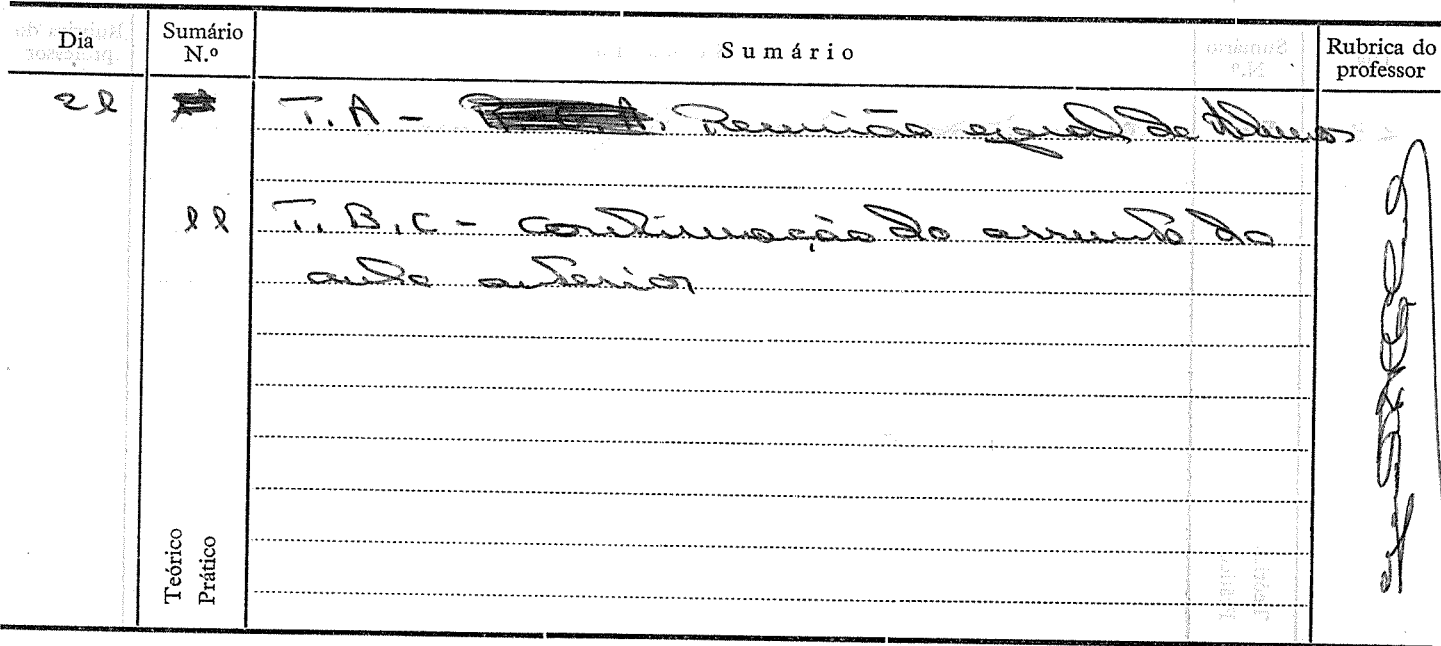 Dia Sumário N.º Sumário Rubrica do professor
21 T.A - Reunião geral de Alunos
11 T.B.C - Continuação do assunto da
aula anterior
Teórico
Prático